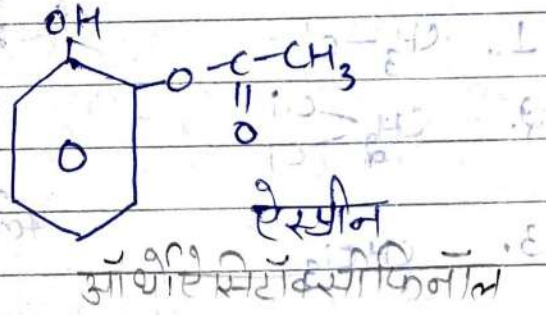 OH
O-C-CH3
||
O
O
ऐस्प्रीन
ऑर्थोऐसिटॉक्सीफिनॉल